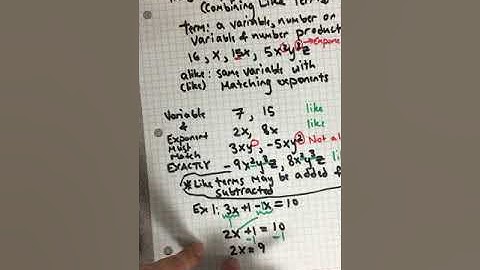 (Combining Like Terms
term: a variable, number or
variable & number product
16, x, 15x, 5x²y²z → Expone
alike: same variable with
(like) Matching exponents
Variable & Exponent Must Match EXACTLY
7, 15 like
2x, 8x like
3xy, -5xy² Not al
-9x²y³z, 8x²y³z li
*Like terms may be added
subtracted
Ex 1: 3x+1-1x=10
2x+1=10
-1 -1
2x=9